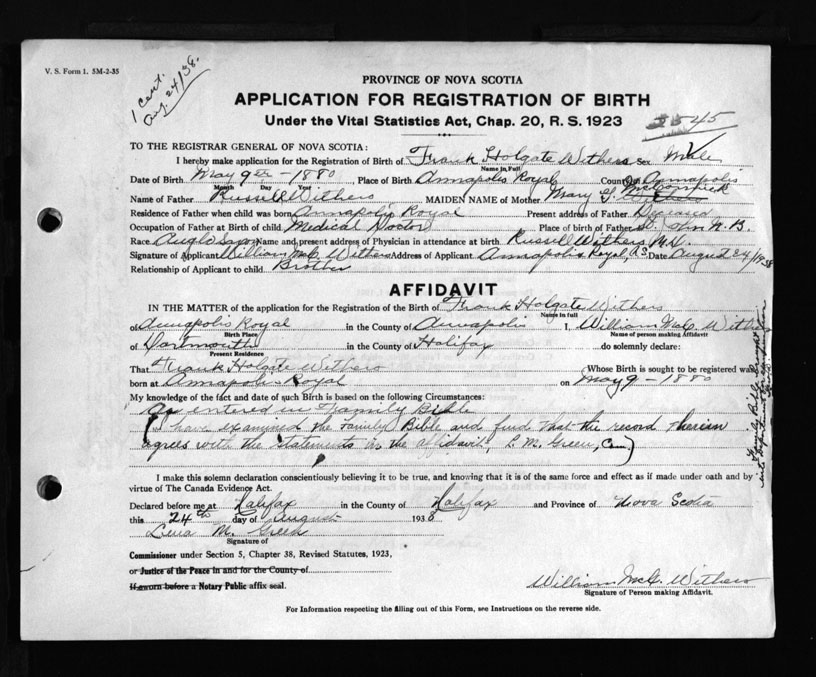 V. S. Form 1. 5M-2-35
1 Cert.
Aug. 24/38.
PROVINCE OF NOVA SCOTIA
APPLICATION FOR REGISTRATION OF BIRTH
Under the Vital Statistics Act, Chap. 20, R. S. 1923
TO THE REGISTRAR GENERAL OF NOVA SCOTIA:
I hereby make application for the Registration of Birth of Frank Holgate Withers Sex Male
Name in Full
Date of Birth May 9th - 1880 Place of Birth Annapolis Royal County Annapolis
Month Day Year
McCormick
Name of Father Russell Withers MAIDEN NAME of Mother Mary G. Withers
Residence of Father when child was born Annapolis Royal Present address of Father Deceased
Occupation of Father at Birth of Child Medical Doctor Place of birth of Father St. John N. B.
Race Anglo Saxon Name and present address of Physician in attendance at birth Russell Withers M.D.
Signature of Applicant William McC. Withers Address of Applicant Annapolis Royal, N.S. Date August 24/1938
Relationship of Applicant to child Brother
AFFIDAVIT
IN THE MATTER of the application for the Registration of the Birth of Frank Holgate Withers
Name in full
of Annapolis Royal in the County of Annapolis I, William McC. Withers
Birth Place Name of person making Affidavit
of Dartmouth in the County of Halifax do solemnly declare:
Present Residence
That Frank Holgate Withers Whose Birth is sought to be registered was
born at Annapolis Royal on May 9 - 1880
My knowledge of the fact and date of such Birth is based on the following Circumstances:
As entered in Family Bible
(I have examined the Family Bible and find that the record therein
agrees with the statements in the affidavit, L. M. Green, Com)
Family Bible brought into
I make this solemn declaration conscientiously believing it to be true, and knowing that it is of the same force and effect as if made under oath and by
virtue of The Canada Evidence Act.
Declared before me at Halifax in the County of Halifax and Province of Nova Scotia
this 24th day of August 1938
Lena M. Green
Signature of
Commissioner under Section 5, Chapter 38, Revised Statutes, 1923,
or Justice of the Peace in and for the County of
If sworn before a Notary Public affix seal.
William McC. Withers
Signature of Person making Affidavit.
For Information respecting the filling out of this Form, see Instructions on the reverse side.